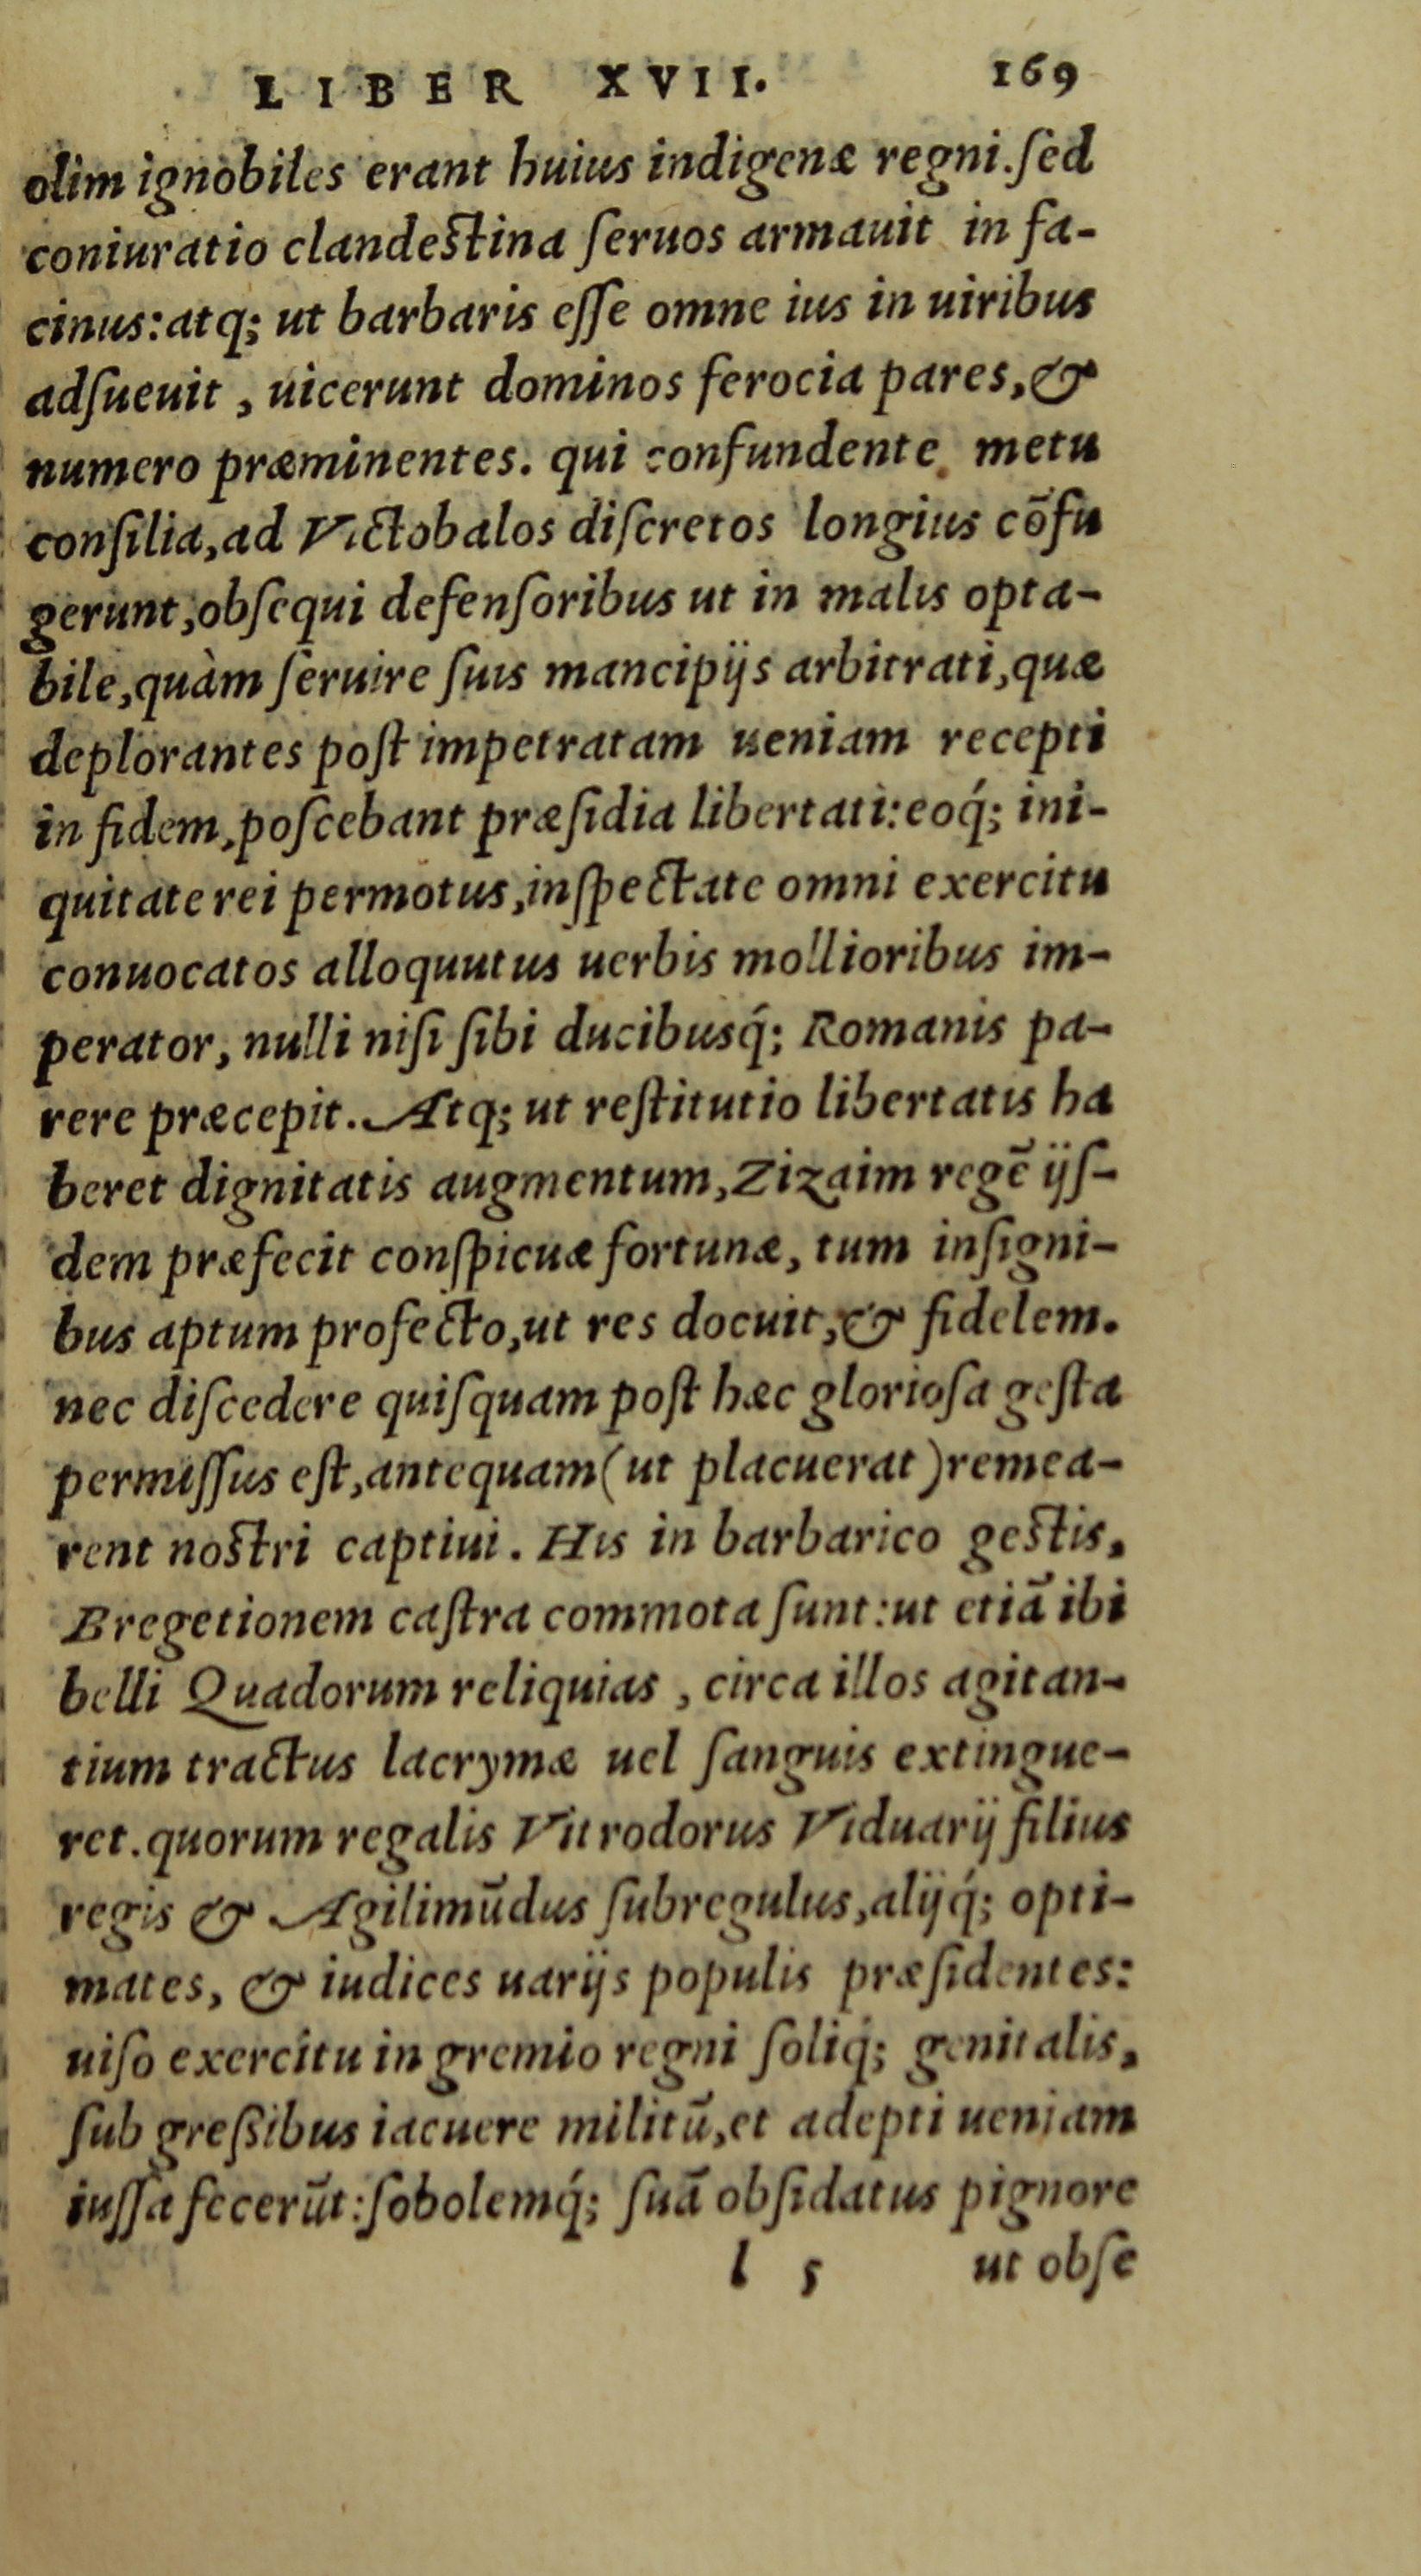 LIBER XVII. 169
olim ignobiles erant huius indigenæ regni. ſed
coniuratio clandeſtina ſeruos armauit in fa-
cinus: atq; ut barbaris eſſe omne ius in uiribus
adſueuit, uicerunt dominos ferocia pares, &
numero præminentes. qui confundente metu
conſilia, ad Victobalos diſcretos longius cōfu
gerunt, obſequi defenſoribus ut in malis opta-
bile, quàm ſeruire ſuis mancipijs arbitrati, quæ
deplorantes poſt impetratam ueniam recepti
in fidem, poſcebant præſidia libertati: eoq́; ini-
quitate rei permotus, inſpectate omni exercitu
conuocatos alloquutus uerbis mollioribus im-
perator, nulli niſi ſibi ducibusq́; Romanis pa-
rere præcepit. Atq; ut reſtitutio libertatis ha
beret dignitatis augmentum, Zizaim regē ijſ-
dem præfecit conſpicuæ fortunæ, tum inſigni-
bus aptum profecto, ut res docuit, & fidelem.
nec diſcedere quiſquam poſt hæc glorioſa geſta
permiſſus eſt, antequam (ut placuerat) remea-
rent noſtri captiui. His in barbarico geſtis,
Bregetionem caſtra commota ſunt: ut etiā ibi
belli Quadorum reliquias, circa illos agitan-
tium tractus lacrymæ uel ſanguis extingue-
ret. quorum regalis Vitrodorus Viduarij filius
regis & Agilimūdus ſubregulus, alijq́; opti-
mates, & iudices uarijs populis præſidentes:
uiſo exercitu in gremio regni ſoliq́; genitalis,
ſub greßibus iacuere militū, et adepti ueniam
iuſſa fecerūt: ſobolemq́; ſuā obſidatus pignore
l 5 ut obſe